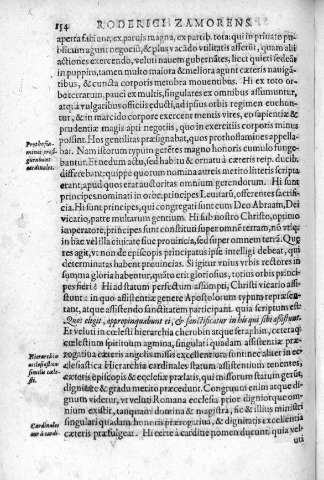 154 RODERICI ZAMORENS.
aperta fabione, ex paruis magna, ex partib. tota: qui in priuato pu-
blicum agunt negociũ, & plus vacãdo vtilitatis afferũt, quam alij
actiones exercendo, veluti nauem gubernãtes, licet quieti sedeãt
in puppi tamen multo maiora & meliora agunt cæteris nauigã-
tibus, & cuncta corporis membra mouentibus. Hi ex toto or-
be terrarum, pauci ex multis, singulares ex omnibus assumuntur,
atq; à vulgaribus officijs ducti, ad ipsius orbis regimen euehon-
tur, & in marcido corpore exercent mentis vires, eo sapientiæ &
prudentiæ magis apti negotijs, quo in exercitijs corporis minus
possint. Hos gentiles præsignabant, quos prothoflamines appella-
bant. Nam illorum typum
Prothofla-
mines præsi-
gurabant
cardinales.
gerẽtes magno honoris cumulo funge-
bantur. Et nedum actu, sed habitu & ornatu à cæteris reip. ducib.
differebant: quippe quorum nomina aureis metro litteris scripta
erant, apud quos erat auctoritas omnium gerendorum. Hi sunt
principes, nominati in orbe, principes Leuitarũ, offerentes sacrifi-
cia. Hi sunt principes, qui congregati sunt cum Deo Abraam, Dei
vicario, patre multarum gentium. Hi sub nostro Christo, optimo
imperatore, principes sunt constituti super omnẽ terram, nõ vtiq;
in hac vel illa ciuitate siue prouincia, sed super omnem terrã. Quę
res agit, vt non de episcopis principatus ipse intelligi debeat, qui
determinatas habent prouincias. Si igitur vnius orbis rectores in
summa gloria habentur, quãto erit gloriosius, totius orbis princi-
pes fieri? Hi ad statum perfectum assumpti, Christi vicario assi-
stunt: in quo assistentiæ genere Apostolorum typum repræsen-
tant, atque assistendo sanctitatem participant. quia scriptum est:
Quos elegit, appropinquabunt ei, & sanctificatur in his qui sibi assistunt.
Et veluti in cœlesti hierarchia cherubin atque seraphin, cæteraq;
cœlestium spirituum agmina, singulari quadam assistentiæ præ-
rogatiua cæteris angelis missis excellentiora sunt: nec aliter in ec-
Hierarchia
ecclesiastica
similis cæle-
sti.
clesiastica Hierarchia cardinales statum assistentium tenentes,
cæteris episcopis & ecclesiæ prælatis, qui missorum statum gerũt,
dignitate & gradu merito præcedunt. Congruum enim atque di-
gnum videtur, vt veluti Romana ecclesia prior dignior que om-
nium existit, tanquam domina & magistra, sic & illius ministri
singulari quadam honoris prærogatiua, & dignitatis excellentia
Cardinales
aut à cardi-
cæteris præfulgeat. Hi certe à cardine nomen ducunt: quia ve-
luti